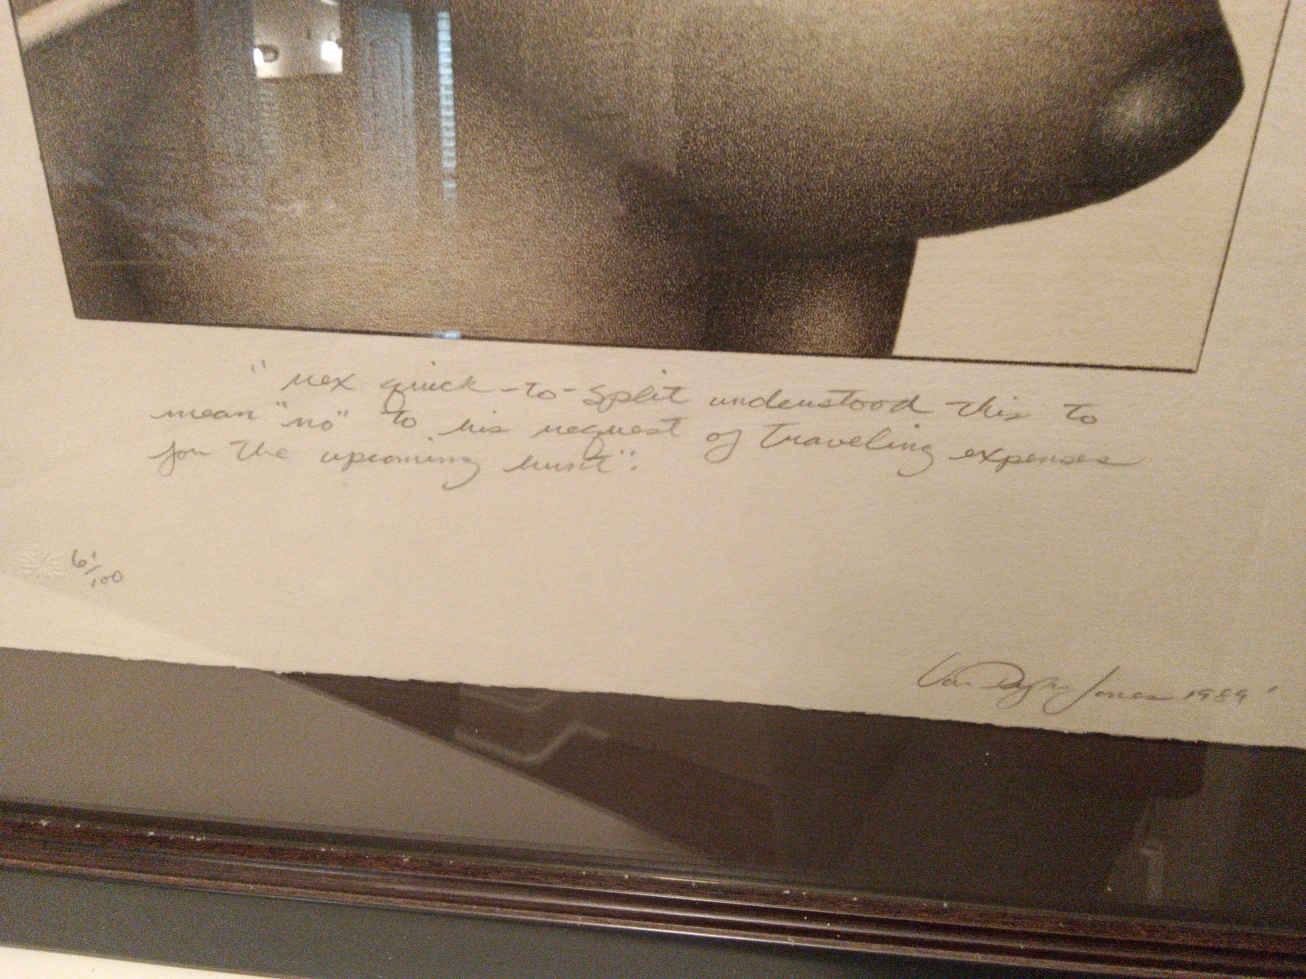 "Rex quick-to-split understood this to
mean "no" to his request of traveling expenses
for the upcoming hunt".
6/100
Van Dyke Jones 1989'